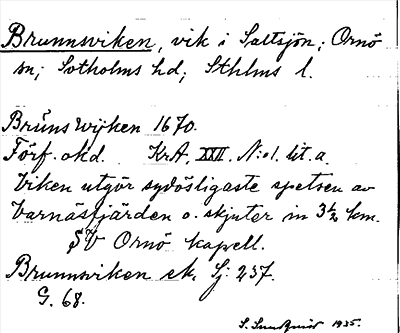 Brunnsviken, vik i Saltsjön; Ornö
sn; Sotholms hd; Sthlms l.
Brúns Wijken 1670.
Förf. okd. KrA, XXII. N:o 1. lit. a.
Viken utgör sydösligaste spetsen av
Varnäsfjärden o. skjuter in 3½ km.
SV Ornö kapell.
Brunnsviken ek. Sj: 237.
G. 68.
1935.